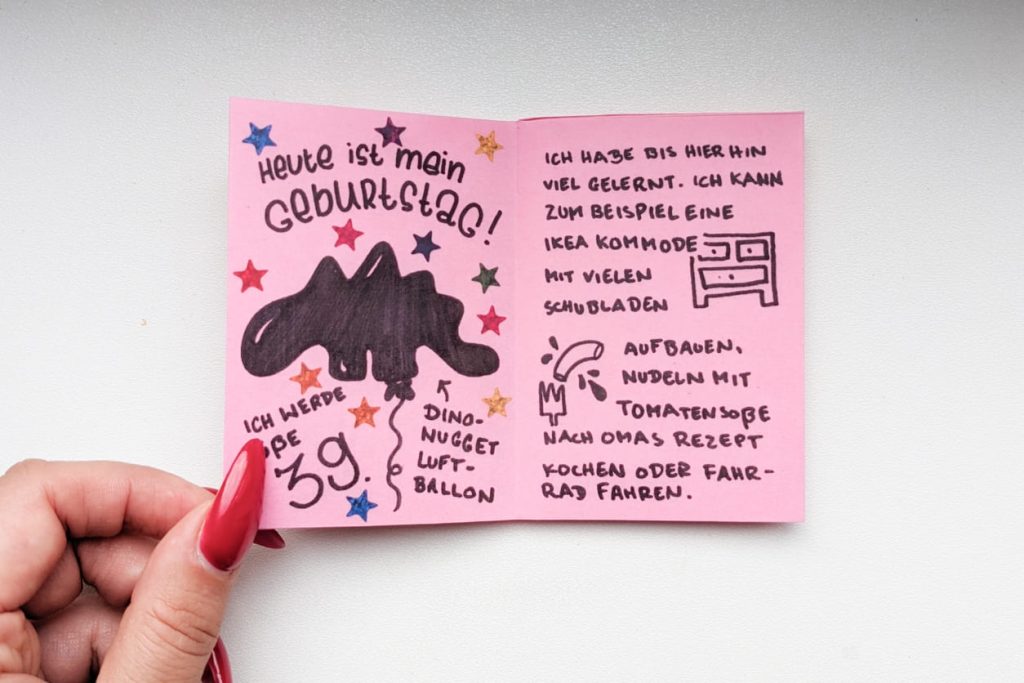 Heute ist mein
Geburtstag!
ICH WERDE
39.
DINO-
NUGGET
LUFT-
BALLON
ICH HABE BIS HIERHIN
VIEL GELERNT. ICH KANN
ZUM BEISPIEL EINE
IKEA KOMMODE
MIT VIELEN
SCHUBLADEN
AUFBAUEN,
NUDELN MIT
TOMATENSOßE
NACH OMAS REZEPT
KOCHEN ODER FAHR-
RAD FAHREN.